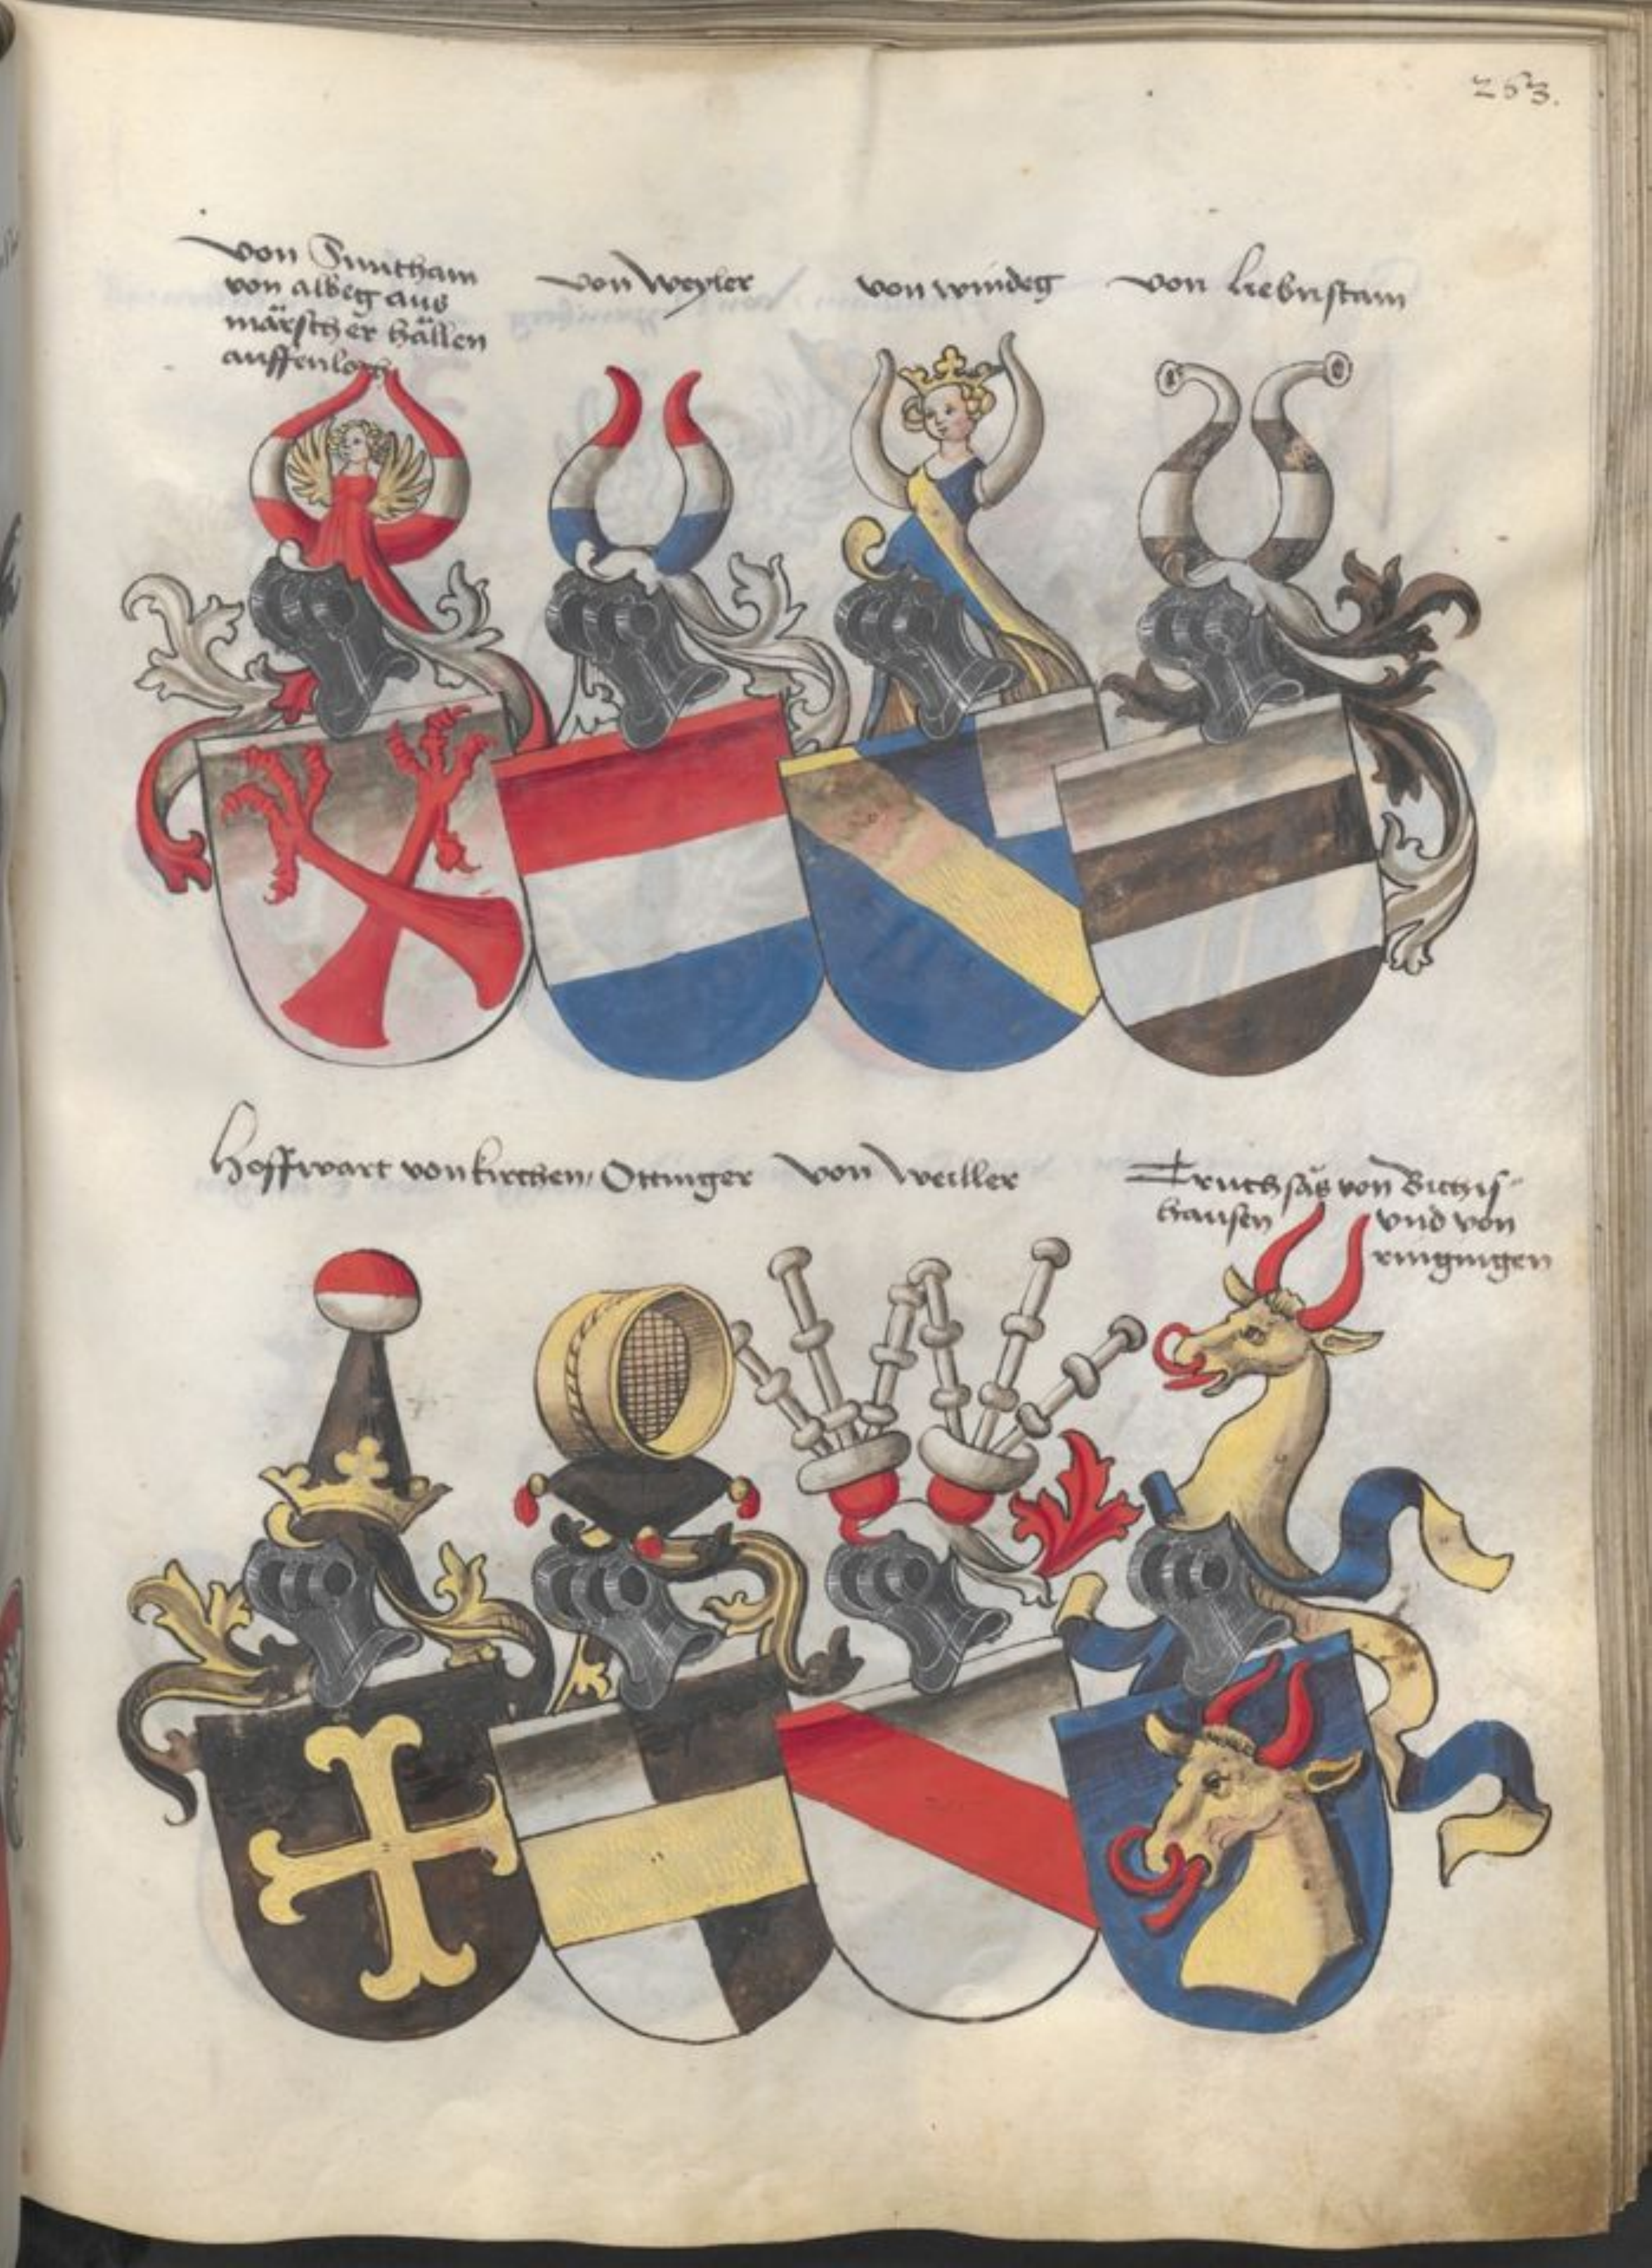 253.
von Suntham
von albeg aus
märscher hällen
auffenloch
von Weyler
von windeg
von Liebnstain
Hoffwart von kirchen, Ottinger
von Weiller
Truchsäs von Bichis-
hausen und von
ringingen